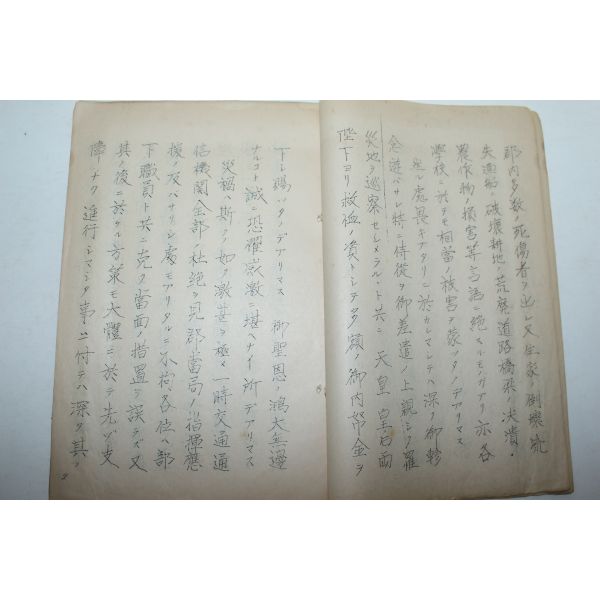 郡内多数ノ死傷者ヲ出シ又住家ノ倒壊流
失漁船ノ破壊耕地ノ荒廃道路橋梁ノ決潰、
農作物ノ損害等言語ニ絶スルモノガアリ亦各
學校ニ於テモ相當ノ損害ヲ蒙ツタノデアリマス
此ノ處畏キアタリニ於カレマシテハ深ク御軫
念遊バサレ特ニ侍従ヲ御差遣ノ上親シク罹
災地ヲ巡察セシメラルヽト共ニ 天皇皇后両
陛下ヨリ救恤ノ資トシテ多額ノ御内帑金ヲ
下シ賜ツタノデアリマス 御聖恩ノ鴻大無邊
ナルコト誠ニ恐懼感激ニ堪ヘナイ所デアリマス
災禍ハ斯クノ如ク激甚ヲ極メ一時交通通
信機関全部ノ杜絶ヲ見郡當局ノ指揮應
援ノ及バザリシ處モアリタルニ不拘各位ハ部
下職員ト共ニ克ク當面ノ措置ヲ誤ラズ又
其ノ後ニ於ケル方策モ大體ニ於テ先ヅ支
障ナク進行シマシタ事ニ付テハ深ク其ノ